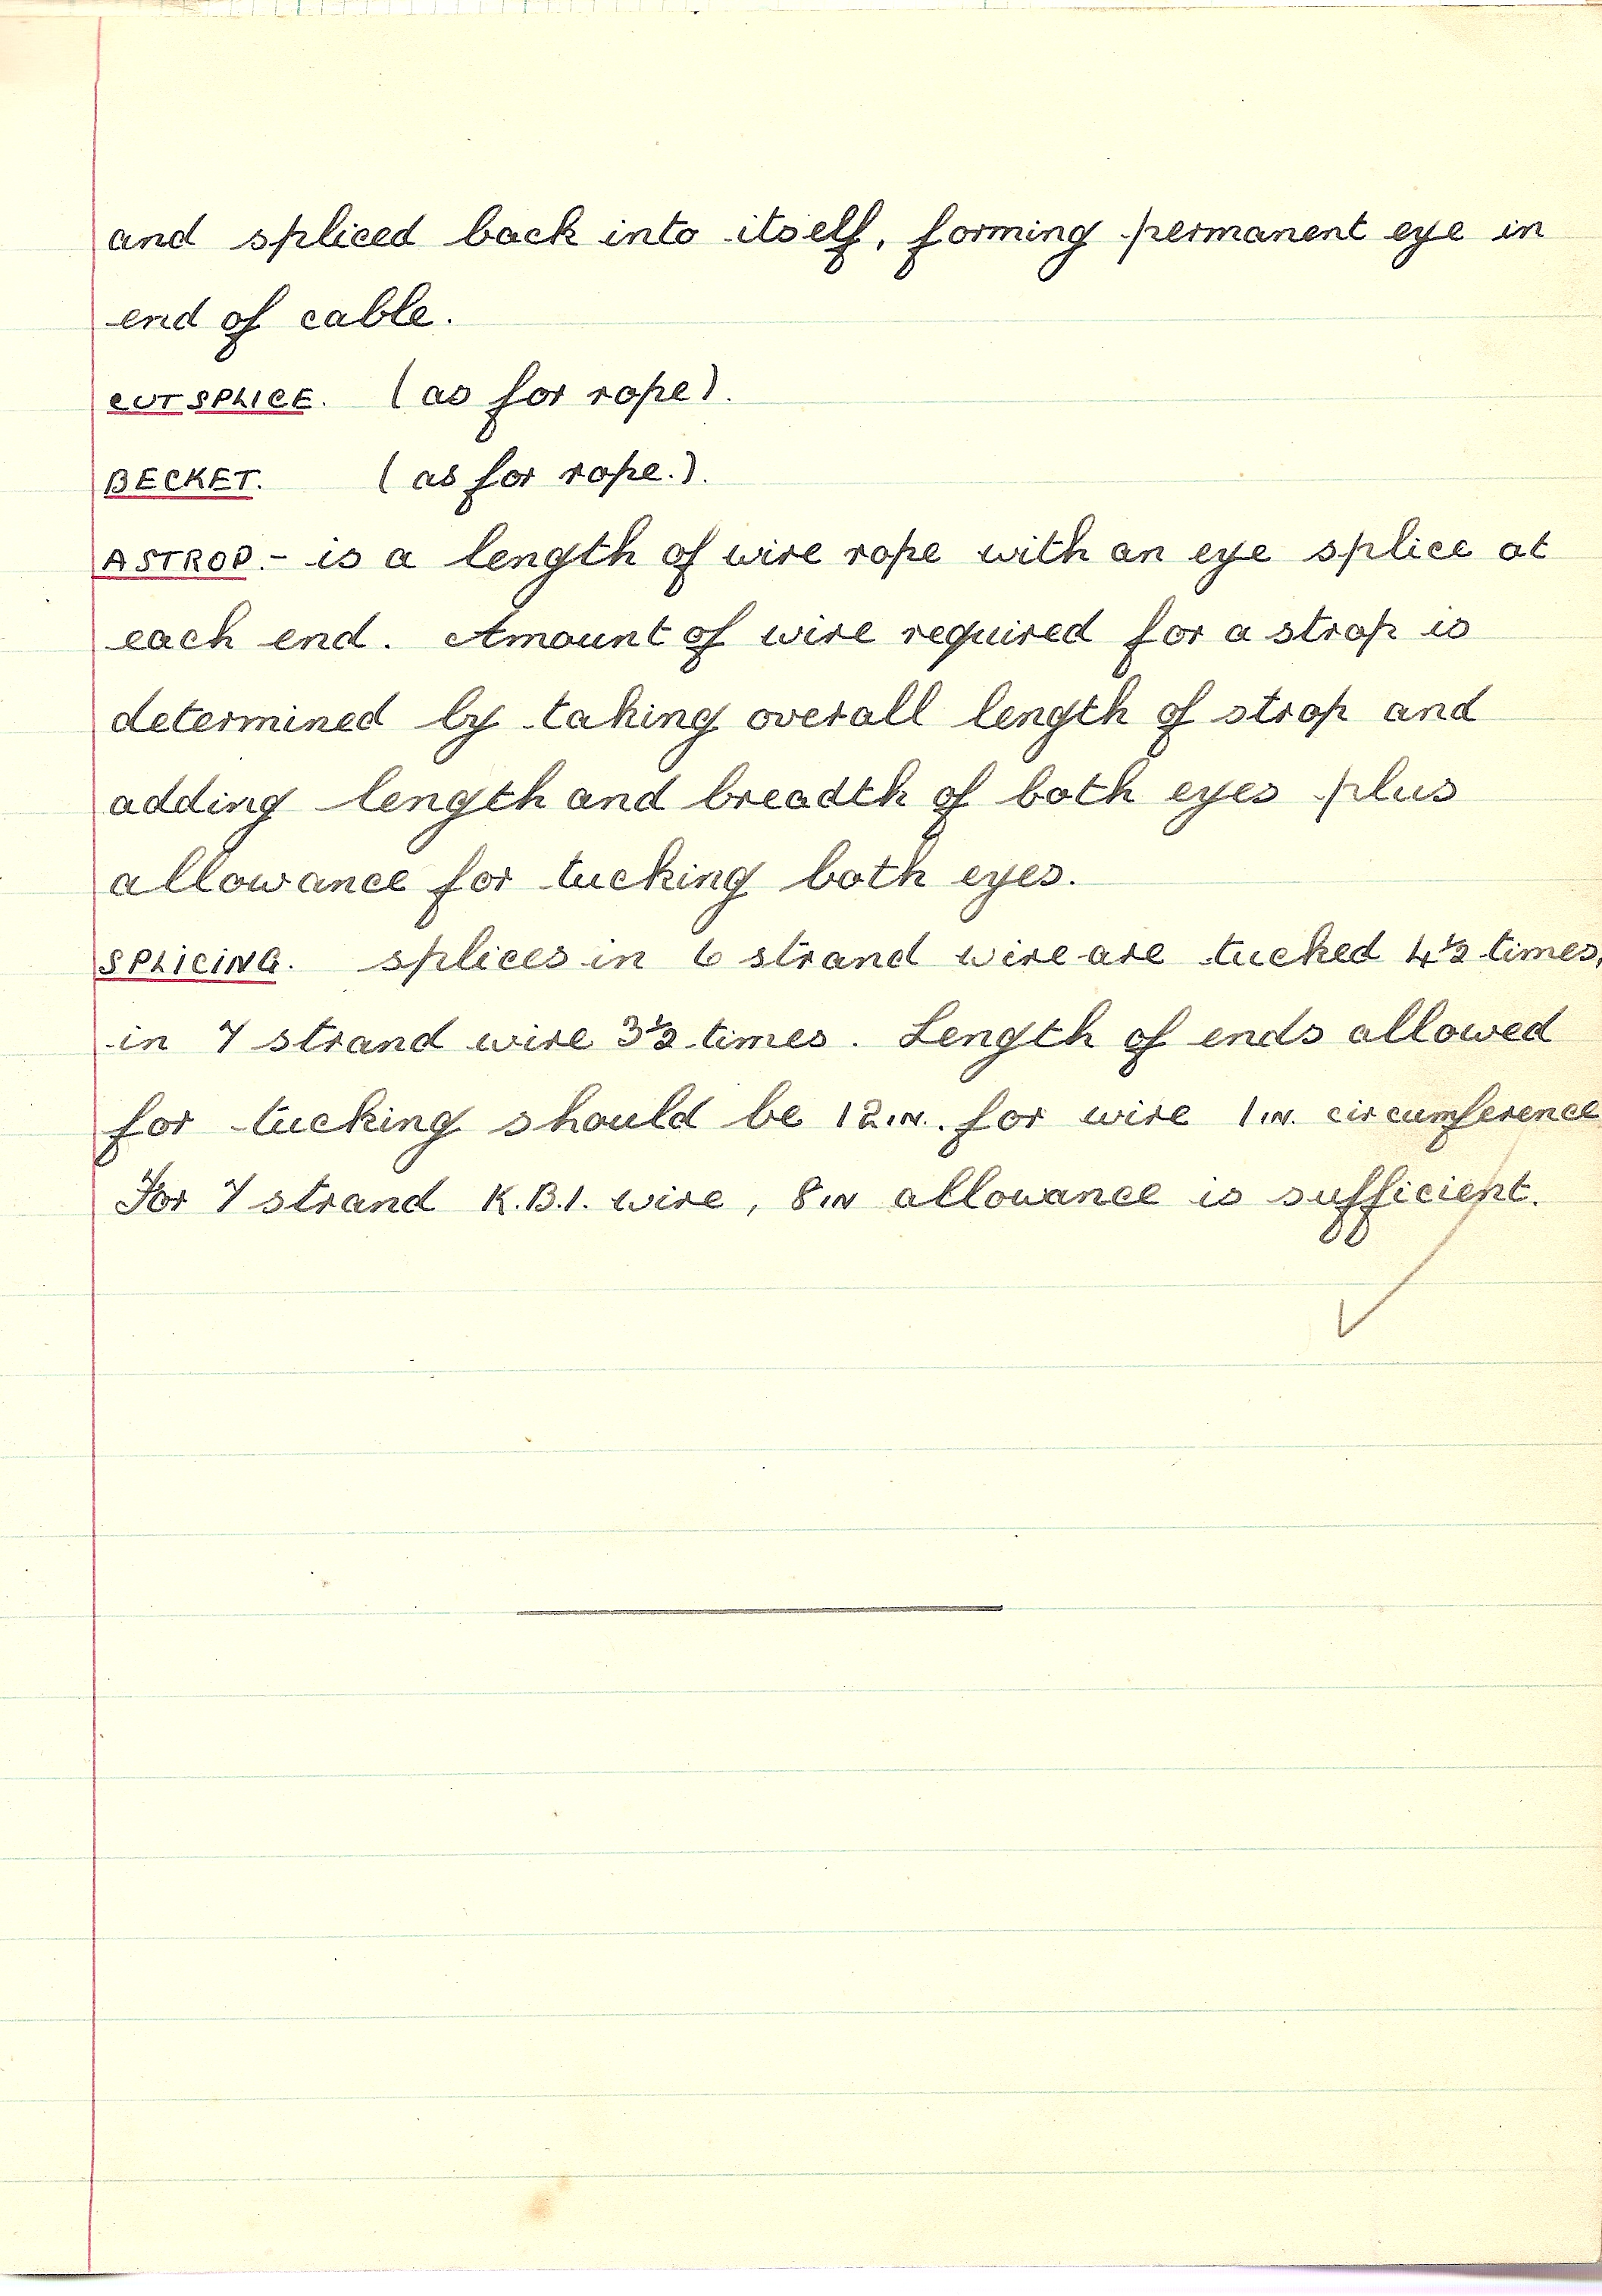 and spliced back into itself, forming permanent eye in
end of cable.
CUT SPLICE. (as for rope).
BECKET. (as for rope.).
A STROP.- is a length of wire rope with an eye splice at
each end. Amount of wire required for a strop is
determined by taking overall length of strop and
adding length and breadth of both eyes plus
allowance for tucking both eyes.
SPLICING. splices in 6 strand wire are tucked 4½ times,
in 7 strand wire 3½ times. Length of ends allowed
for tucking should be 12 IN. for wire 1 IN. circumference
For 7 strand K.B.I. wire, 8 IN allowance is sufficient.